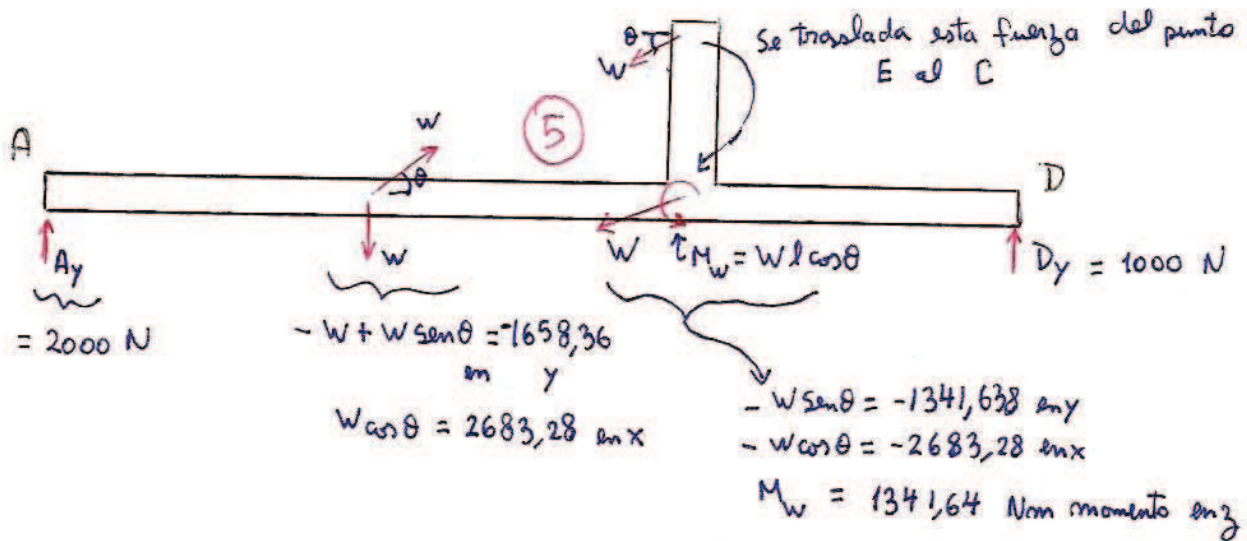 θ
W
Se traslada esta fuerza del punto
E al C
5
w
θ
A
D
Ay
w
W
Mw = W l cosθ
Dy = 1000 N
= 2000 N
- W + W senθ = -1658,36
en y
W cosθ = 2683,28 en x
- W senθ = -1341,638 en y
- W cosθ = -2683,28 en x
Mw = 1341,64 Nm momento en z